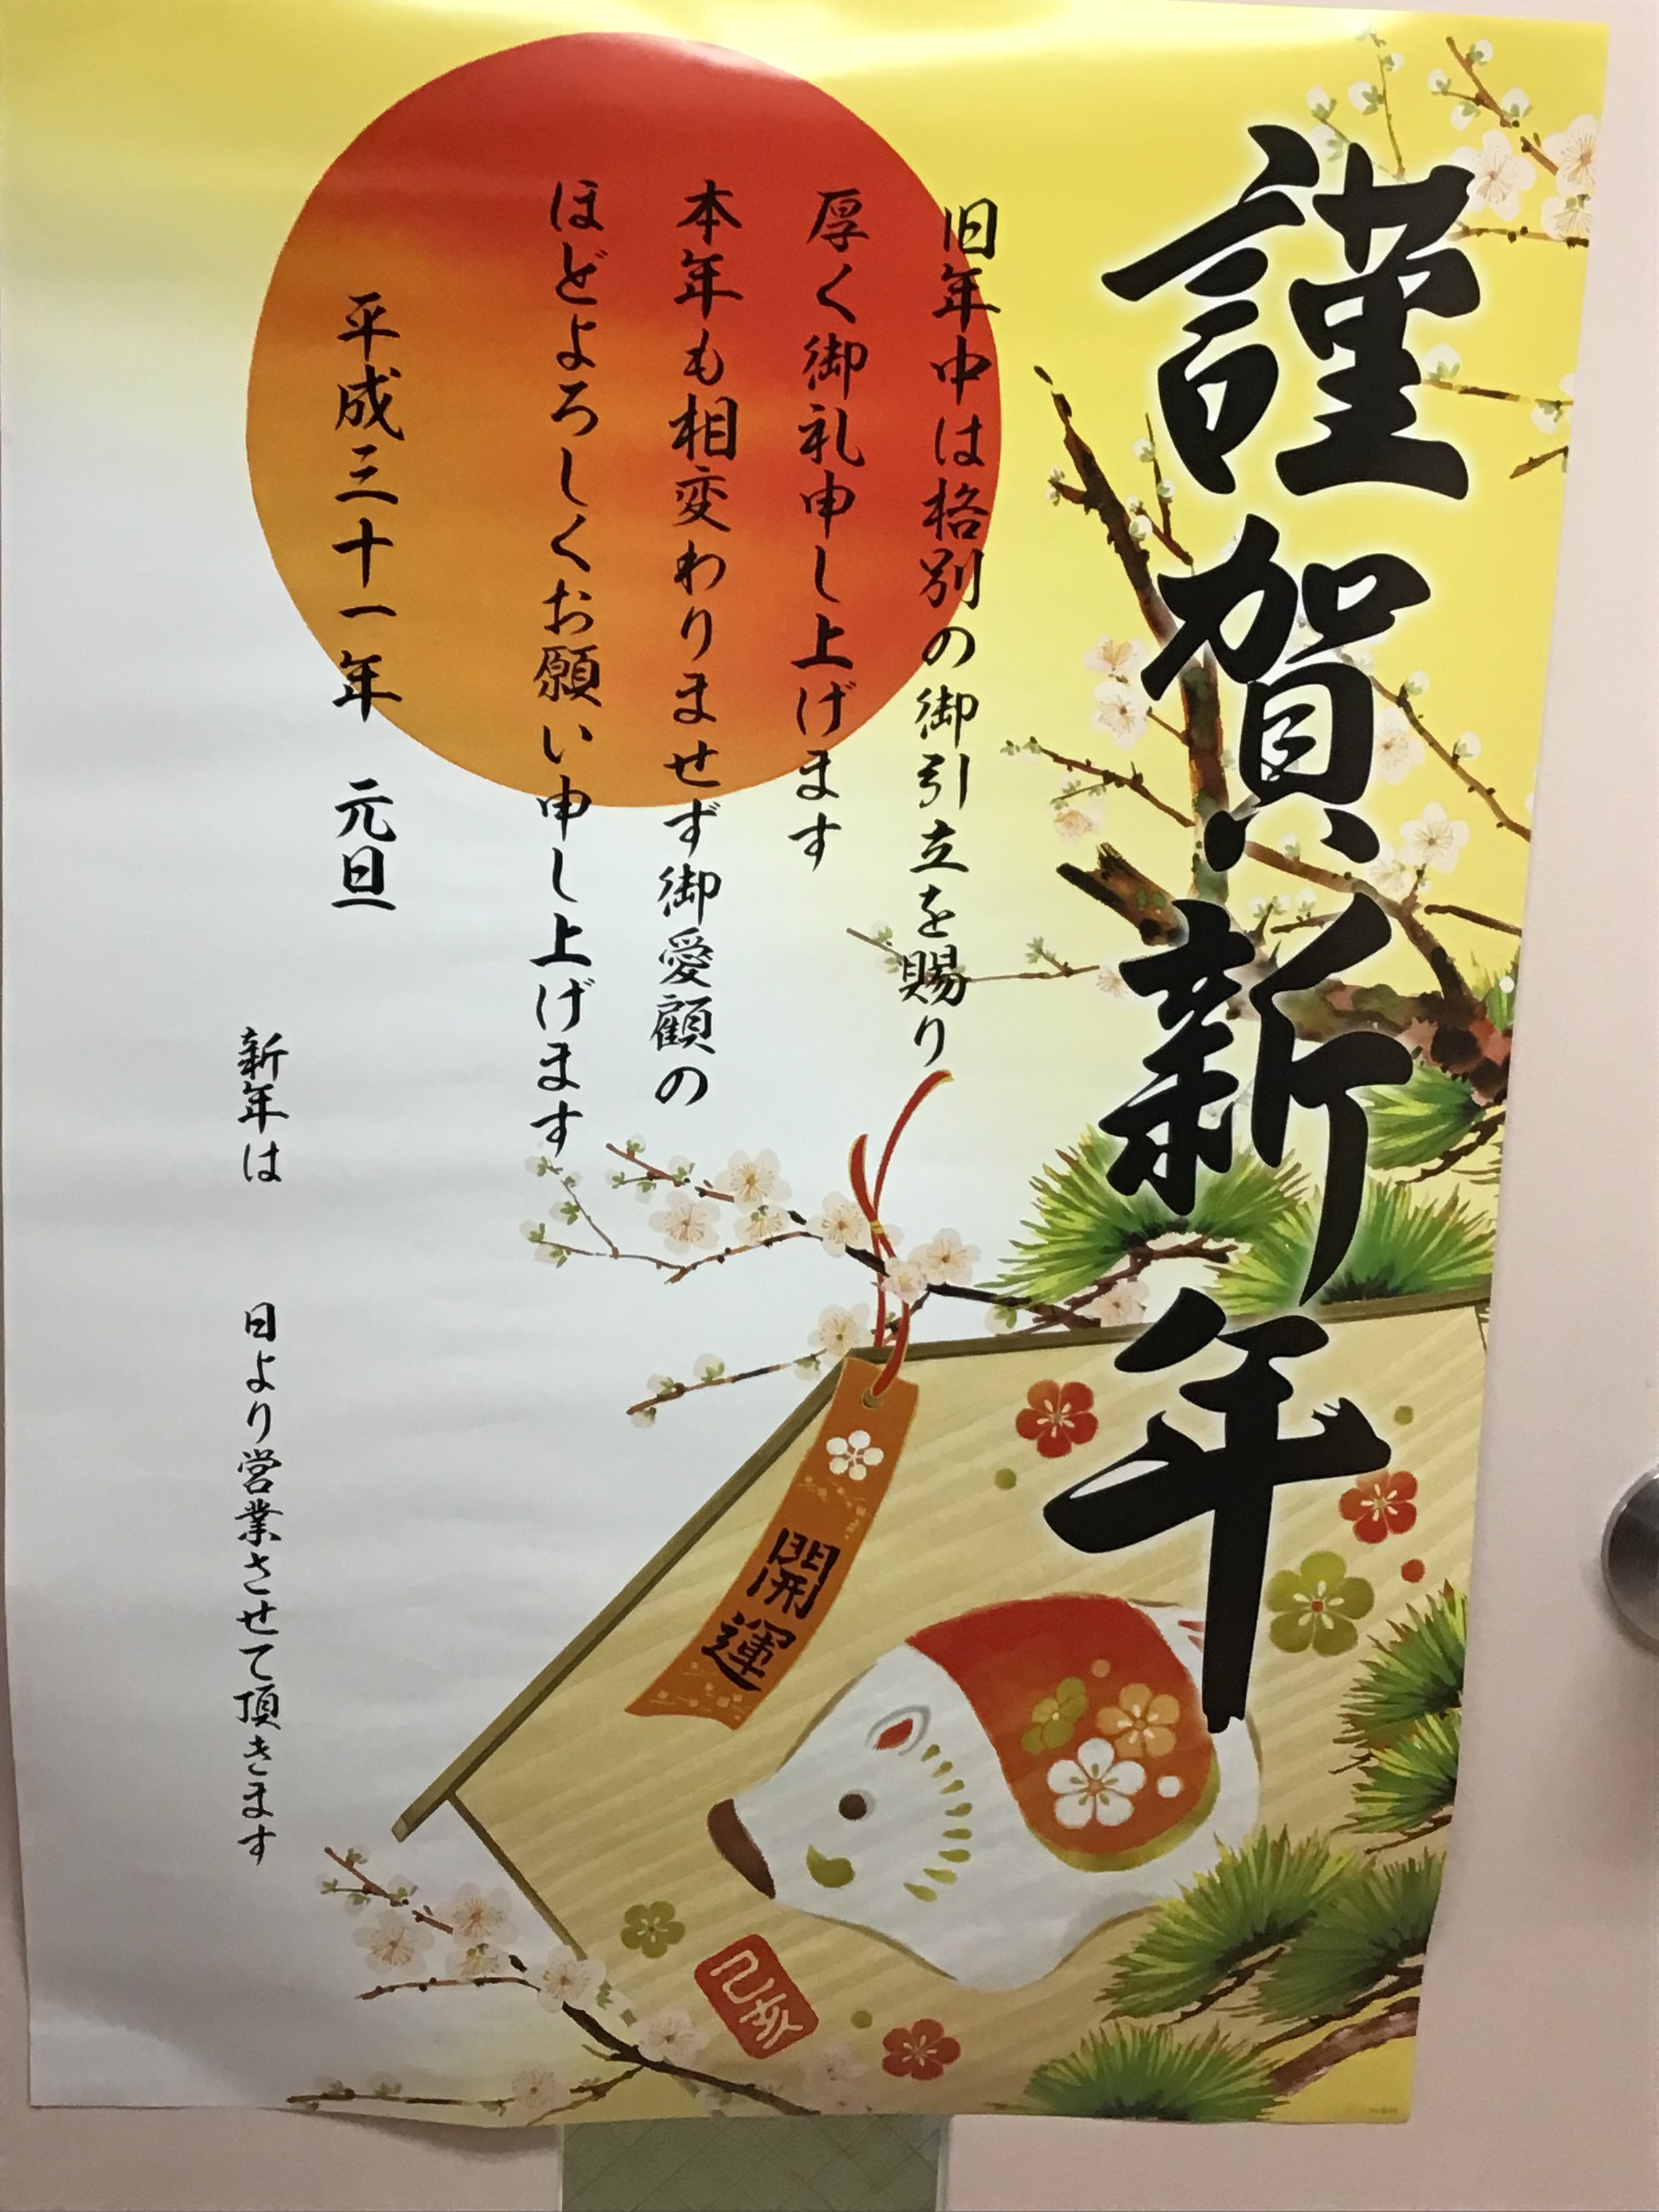 謹賀新年
旧年中は格別の御引立を賜り
厚く御礼申し上げます
本年も相変わりませず御愛顧の
ほどよろしくお願い申し上げます
平成三十一年 元旦
新年は 日より営業させて頂きます
開運
己亥